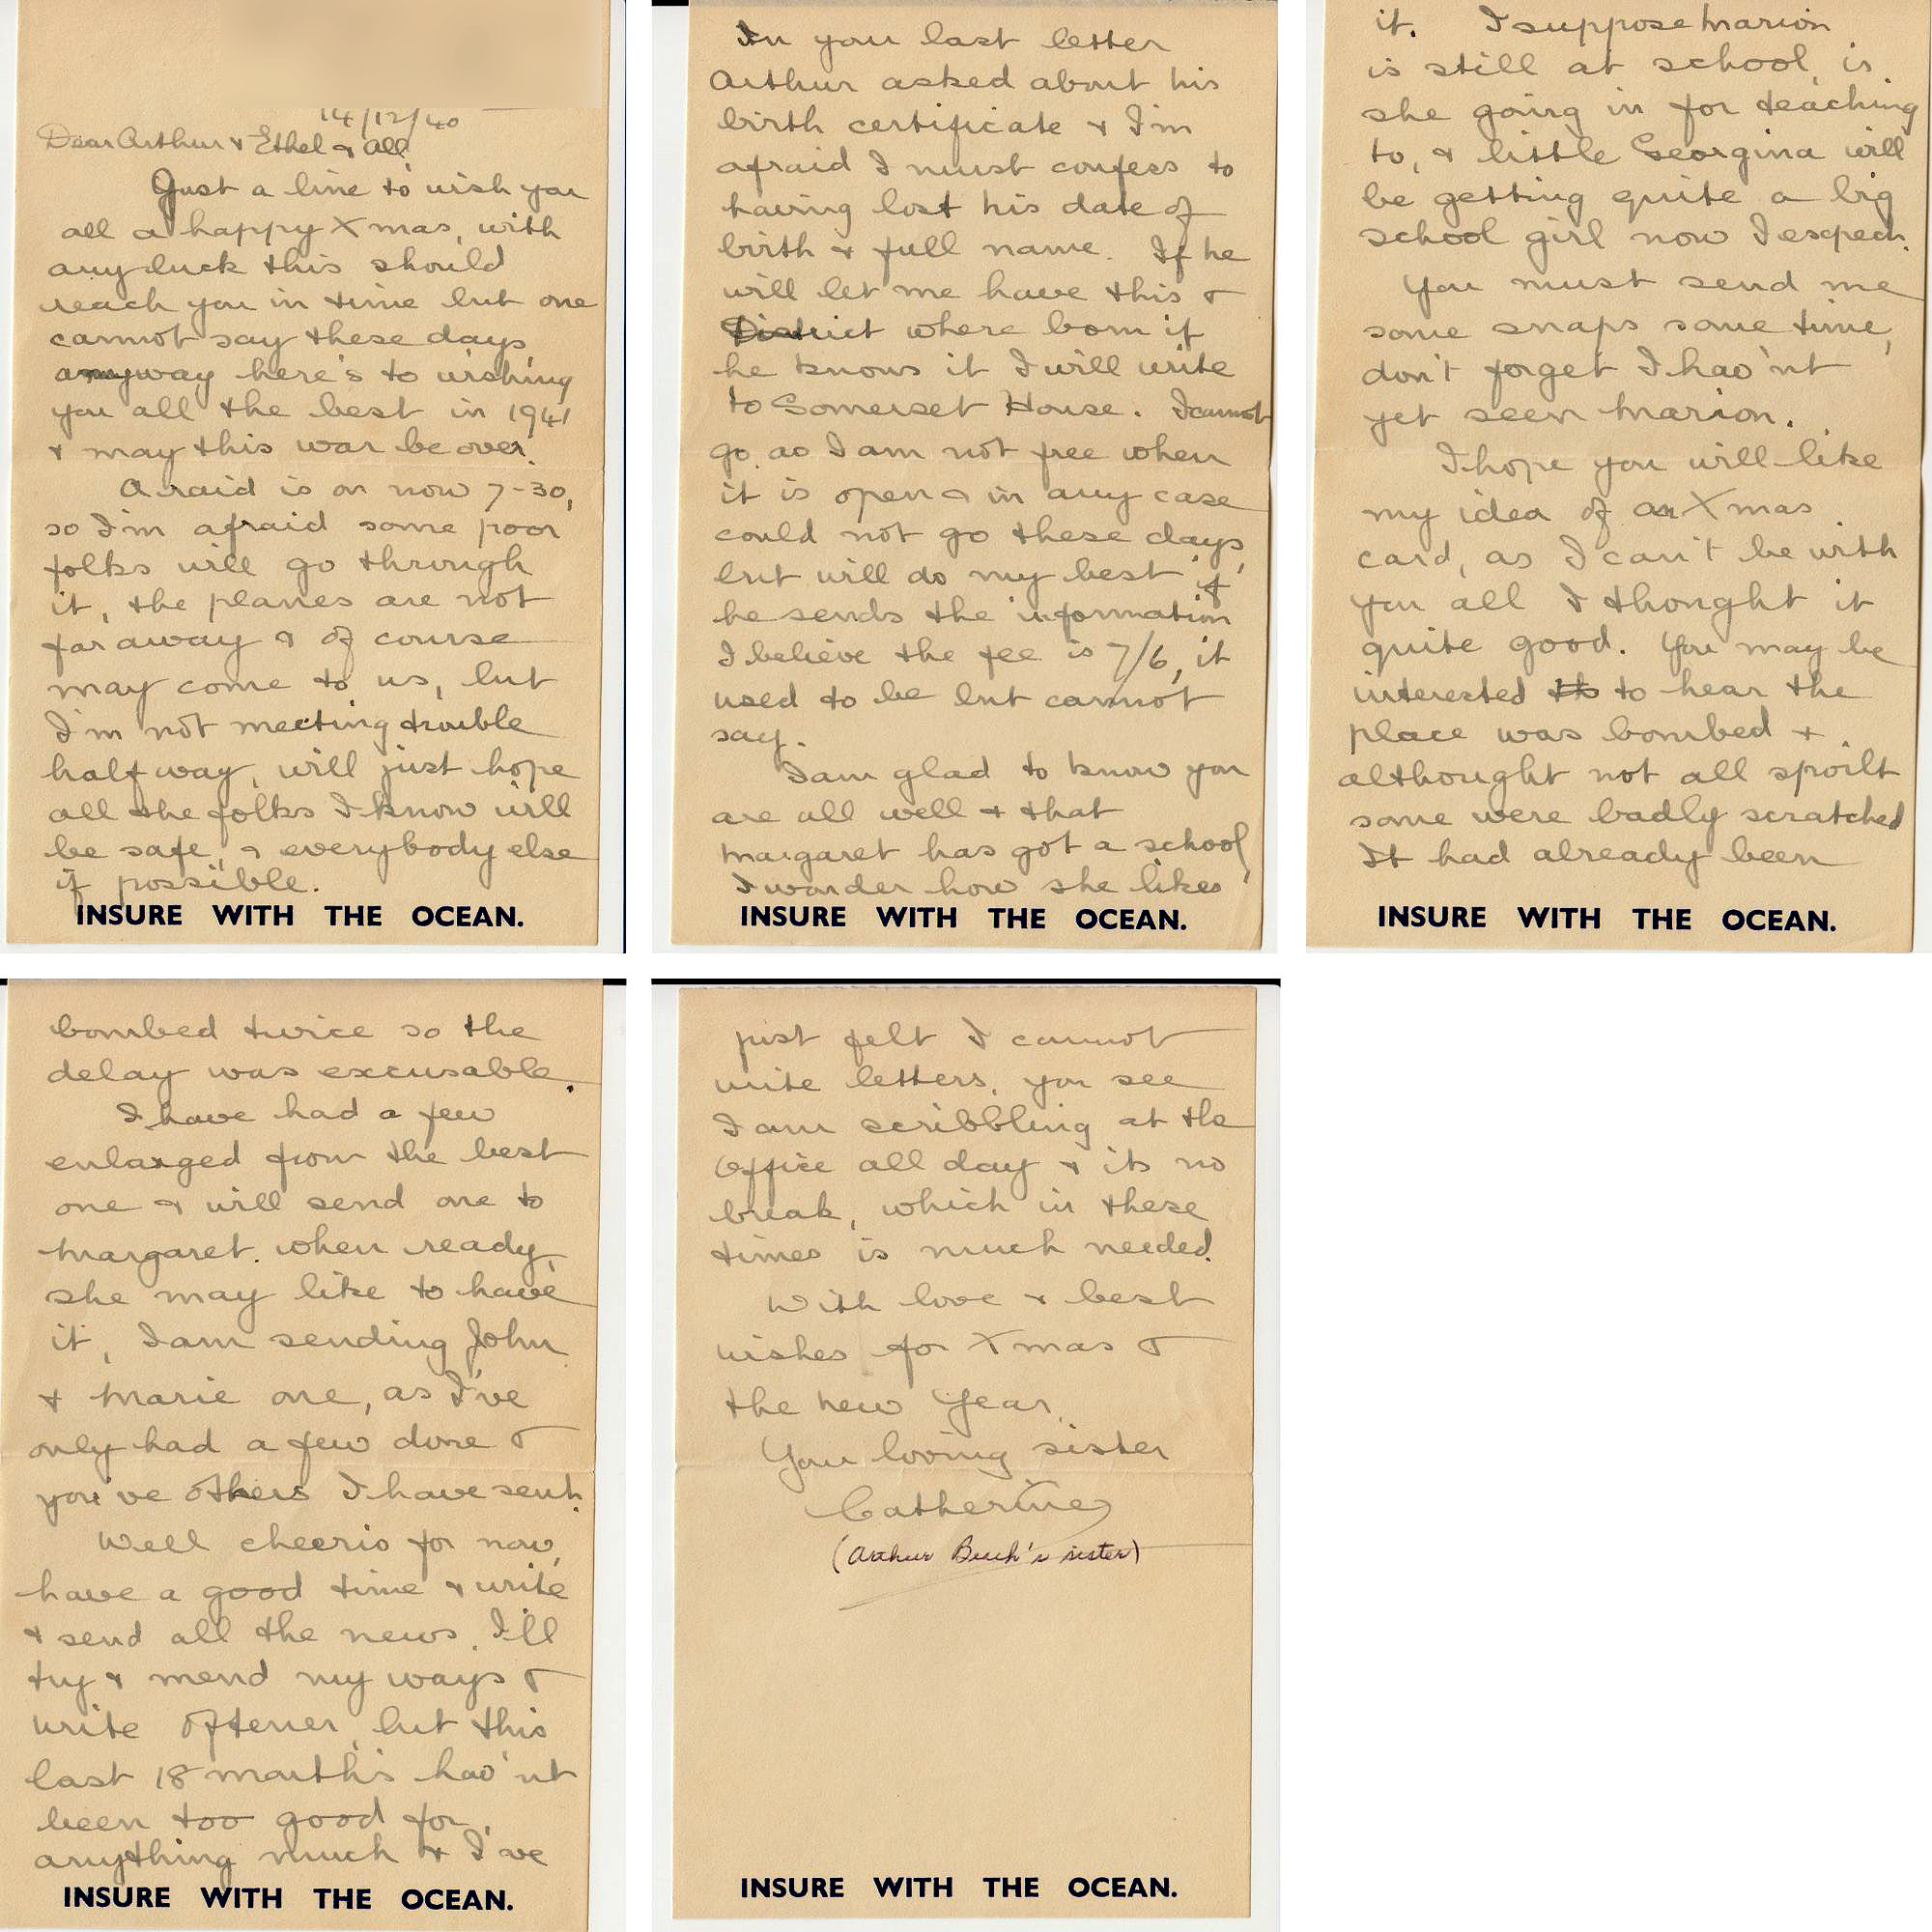 14/12/40
Dear Arthur & Ethel & All,
Just a line to wish you
all a happy Xmas, with
any luck this should
reach you in time but one
cannot say these days,
anyway here's to wishing
you all the best in 1941
& may this war be over.
A raid is on now 7-30,
so I'm afraid some poor
folks will go through
it, the planes are not
far away & of course
may come to us, but
I'm not meeting trouble
half way, will just hope
all the folks I know will
be safe, & everybody else
if possible.
INSURE WITH THE OCEAN.
In you last letter
Arthur asked about his
birth certificate & I'm
afraid I must confess to
having lost his date of
birth & full name. If he
will let me have this &
District where born if
he knows it I will write
to Somerset House. I cannot
go as I am not free when
it is open & in any case
could not go these days,
but will do my best if
he sends the information
I believe the fee is 7/6, it
used to be but cannot
say.
I am glad to know you
are all well & that
Margaret has got a school,
I wonder how she likes
INSURE WITH THE OCEAN.
it. I suppose Marion
is still at school, is
she going in for teaching
to, & little Georgina will
be getting quite a big
school girl now I expect.
You must send me
some snaps some time,
don't forget I hav'nt
yet seen Marion.
I hope you will like
my idea of an Xmas
card, as I can't be with
you all I thought it
quite good. You may be
interested to hear the
place was bombed &
althought not all spoilt
some were badly scratched
It had already been
INSURE WITH THE OCEAN.
bombed twice so the
delay was excusable.
I have had a few
enlarged from the best
one & will send one to
Margaret. when ready,
she may like to have
it, I am sending John
& Marie one, as I've
only had a few done &
you've others I have sent.
Well cheerio for now,
have a good time & write
& send all the news. I'll
try & mend my ways &
write oftener, but this
last 18 months hav'nt
been too good for
anything much & I've
INSURE WITH THE OCEAN.
just felt I cannot
write letters, you see
I am scribbling at the
Office all day & its no
break, which in these
times is much needed.
With love & best
wishes for Xmas &
the New Year.
Your loving sister
Catherine
(Arthur Buck's sister)
INSURE WITH THE OCEAN.